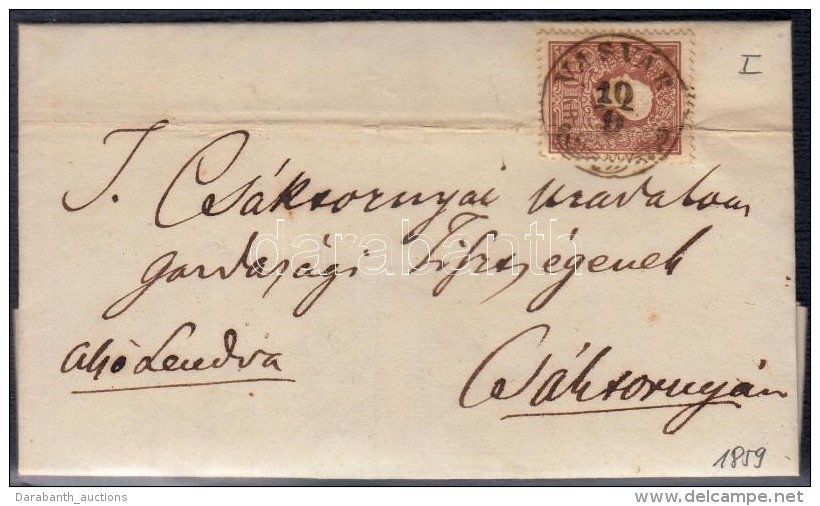 VASVÁR
10
9
I
T. Csáktornyai uradalom
gazdasági Tisztségének
Alsó Lendva
Csáktornyán
1859
darabanth
Darabanth_auctions
delcampe.net